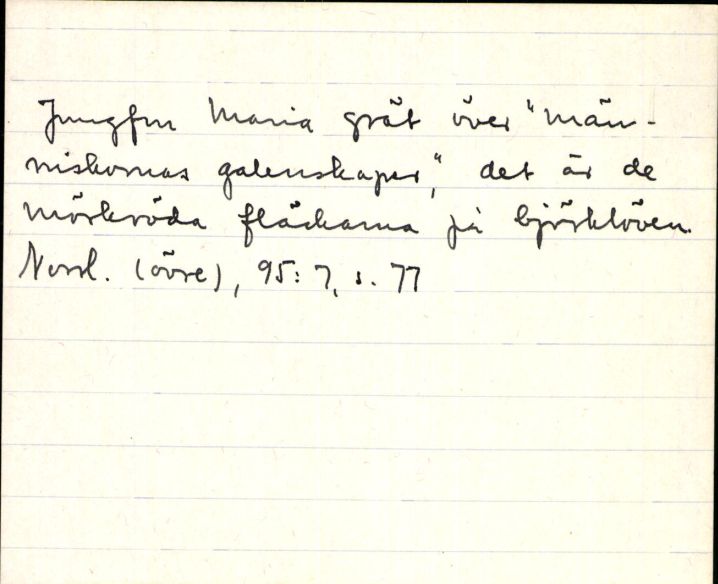 Jungfru Maria grät över "män-
niskornas galenskaper", det är de
mörkröda fläckarna på björklöven.
Norrl. (övre), 95:7, s. 77